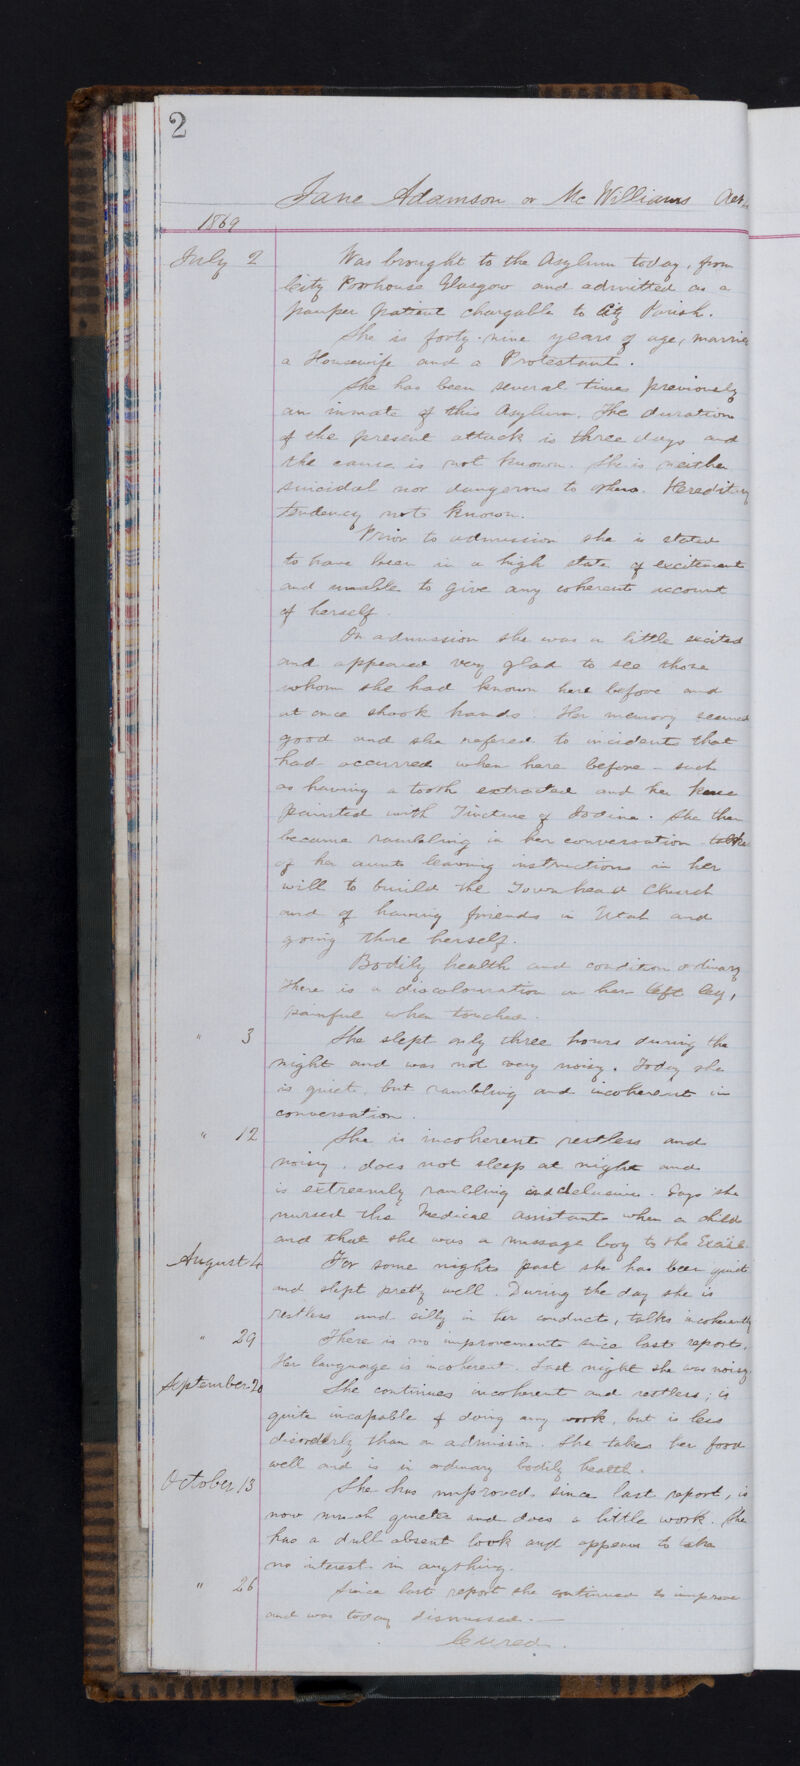 2
Jane Adamson or McWilliams Aet.
1869
July 2 Was brought to the Asylum today, from
City Poorhouse Glasgow and admitted as a
pauper patient chargable to City Parish.
She is forty-nine years of age, married
a Housewife and a Protestant.
She has been several times previously
an inmate of this Asylum. The duration
of the present attack is three days and
the cause is not known. She is neither
suicidal nor dangerous to others. Hereditary
tendency not known.
Prior to admission she is stated
to have been in a high state of excitement
and unable to give any coherent account
of herself.
On admission she was a little excited
and appeared very glad to see those
whom she had known here before and
at once shook hands. Her memory seemed
good and she refered to incidents that
had occurred when here before - such
as having a tooth extracted and her knee
painted with Tincture of Iodine. She then
became rambling in her conversation talks
of her aunt leaving instructions in her
will to build the Townhead Church
and of having friends in Utah and
going there herself.
Bodily health and condition ordinary
There is a discolouration on her left leg,
painful when touched.
" 3 She slept only three hours during the
night and was not very noisy. Today she
is quiet, but rambling and incoherent in
conversation.
" 12 She is incoherent restless and
noisy, does not sleep at night and
is extreemly rambling and delusive. Says she
nursed the Medical assistant when a child
and that she was a message boy to the Excise.
August 4 For some nights past she has been quiet
and slept pretty well. During the day she is
restless and silly in her conduct, talks incoherently
" 29 There is no improvement since last report.
Her language is incoherent. Last night she was noisy.
September 20 She continues incoherent and restless; is
quite incapable of doing any work, but is less
disorderly than on admission. She takes her food
well and is in ordinary bodily health.
October 13 She has improved since last report, is
now much quieter and does a little work. She
has a dull absent look and appears to take
no interest in anything.
" 26 Since last report she continued to improve
and was today dismissed. —
Cured.